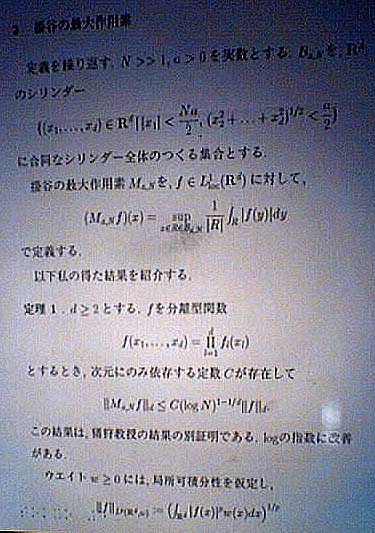 2 掛谷の最大作用素
定義を繰り返す. N >> 1, a > 0 を実数とする. B_{a,N} を, R^d
のシリンダー
{(x_1, ..., x_d) ∈ R^d | |x_1| < Na/2, (x_2^2 + ... + x_d^2)^{1/2} < a/2}
に合同なシリンダー全体のつくる集合とする.
掛谷の最大作用素 M_{a,N} を, f ∈ L^1_{loc}(R^d) に対して,
(M_{a,N}f)(x) = sup_{x∈R∈B_{a,N}} 1/|R| ∫_R |f(y)|dy
で定義する.
以下私の得た結果を紹介する.
定理 1. d ≥ 2 とする. f を分離型関数
f(x_1, ..., x_d) = ∏_{l=1}^d f_l(x_l)
とするとき, 次元にのみ依存する定数 C が存在して
||M_{a,N}f||_d ≤ C(log N)^{1-1/d}||f||_d.
この結果は, 猪狩教授の結果の別証明である. log の指数に改善
がある.
ウエイト w ≥ 0 には, 局所可積分性を仮定し,
||f||_{L^p(R^d,w)} := (∫_{R^d} |f(x)|^p w(x)dx)^{1/p}